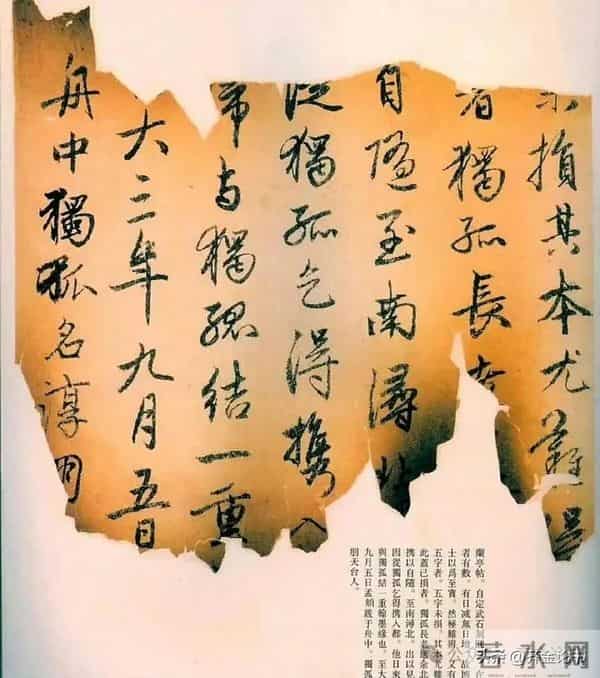 損其本尤難得
者獨孤長
自隨至南潯北
從獨孤乞得携入
与獨孤結一重
大三年九月五日
舟中獨孤名淳朋
蘭亭帖。自定武石刻既亡。在
者有數。有日减無日增。故博
士以爲至寶。然極難辨。又有
五字者。五字未損。其本尤難
此蓋已損者。獨孤長老送余北
携以自隨。至南潯北。出以見
因從獨孤乞得携入都。他日來
與獨孤結一重翰墨緣也。至大
九月五日孟頫跋于舟中。獨孤
朋天台人。
若水网
头条